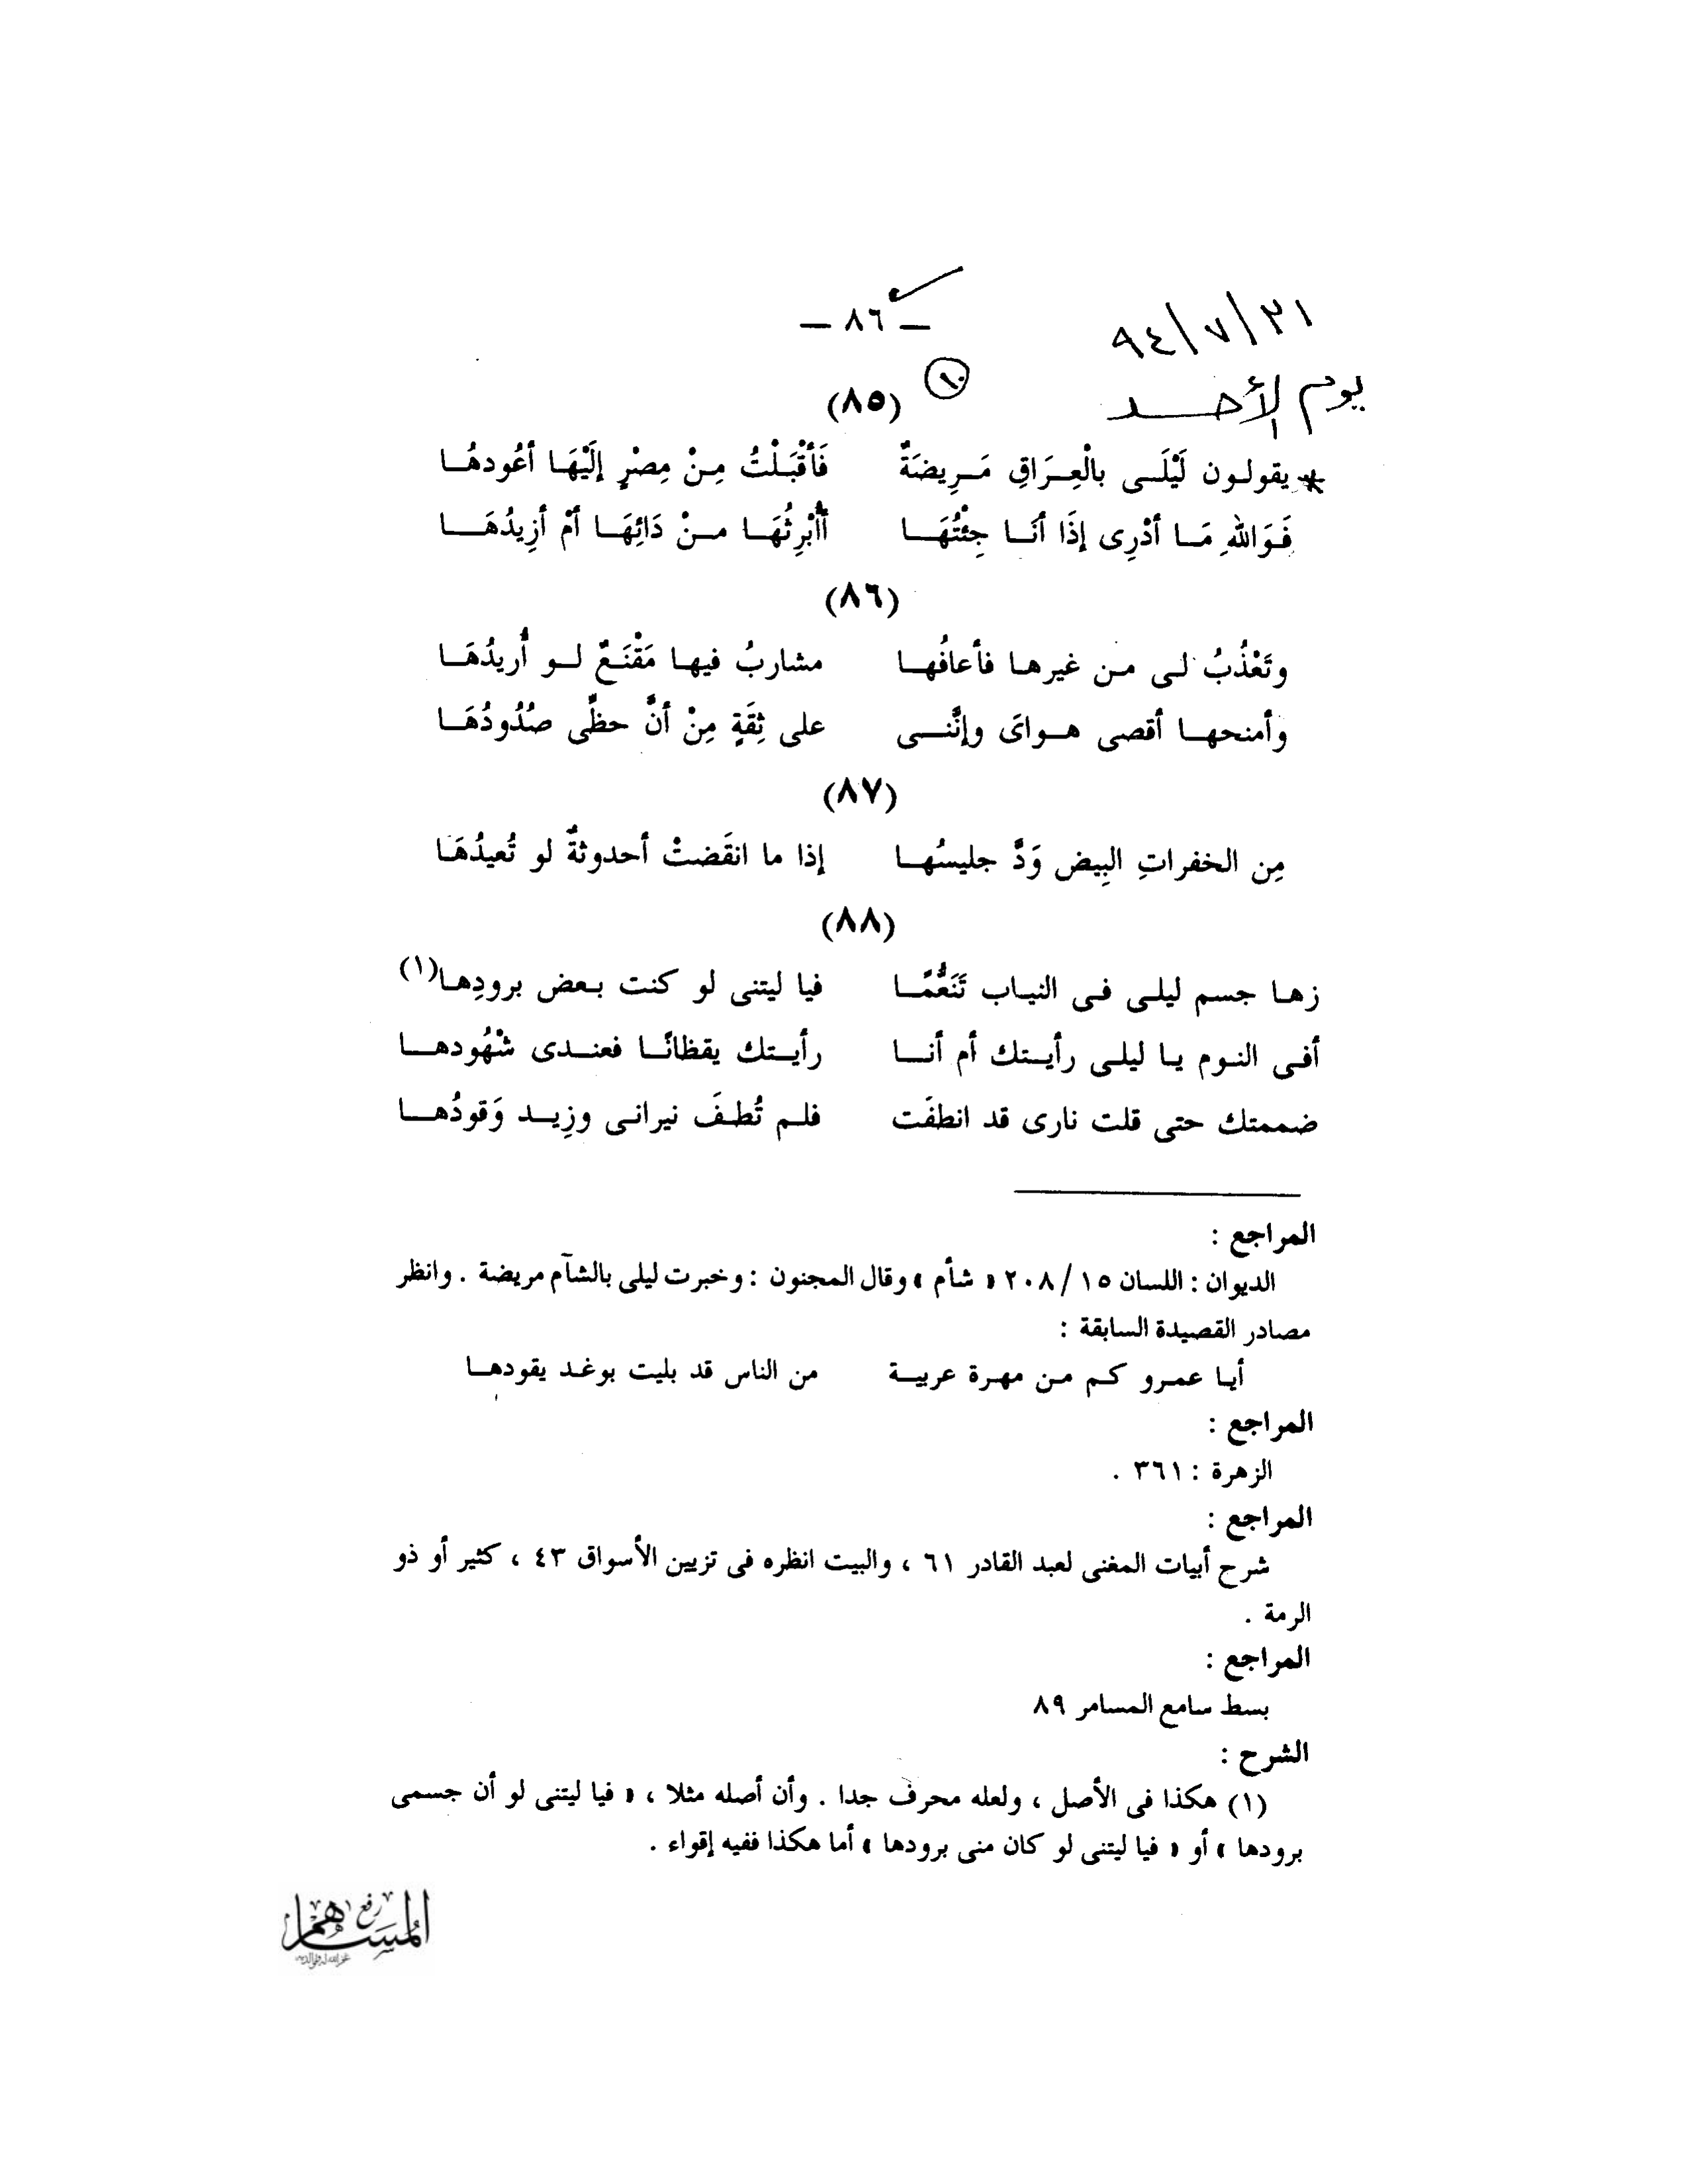 — ٨٦ —
٩٤/٧/٣١
يوم الأحد
(٨٥)
١٠
* يقولون لَيْلَى بالْعِرَاقِ مَرِيضَةٌ فَأَقْبَلْتُ مِنْ مِصْرٍ إلَيْهَا أعُودهُا
فَوَاللهِ مَا أدْرِى إذَا أنَا جِئْتُهَا أأُبْرِثُهَا منْ دَائِهَا أمْ أزِيدُهَا
(٨٦)
وتَعْذُبُ لى من غيرها فأعافُها مشاربُ فيها مَقْنَعٌ لو أُريدُهَا
وأمنحها أقصى هواىَ وإنَّنى على ثِقَةٍ مِنْ أنَّ حظِّى صُدُودُهَا
(٨٧)
مِن الخفراتِ البِيض وَدَّ جليسُها إذا ما انقَضتْ أحدوثةٌ لو تُعيدُهَا
(٨٨)
زها جسم ليلى فى النياب تَنَعُّمًا فيا ليتنى لو كنت بعض برودِها(١)
أفى النوم يا ليلى رأيتك أم أنا رأيتك يقظانًا فعندى شْهُودها
ضممتك حتى قلت نارى قد انطفَت فلم تُطفَ نيرانى وزِيد وَقودُها
المراجع :
الديوان : اللسان ١٥ / ٢٠٨ « شأم » وقال المجنون : وخبرت ليلى بالشآم مريضة . وانظر
مصادر القصيدة السابقة :
أيا عمرو كم من مهرة عربية من الناس قد بليت بوغد يقودها
المراجع :
الزهرة : ٣٦١ .
المراجع :
شرح أبيات المغنى لعبد القادر ٦١ ، والبيت انظره فى تزيين الأسواق ٤٣ ، كثير أو ذو
الرمة .
المراجع :
بسط سامع المسامر ٨٩
الشرح :
(١) هكذا فى الأصل ، ولعله محرف جدا . وأن أصله مثلا ، « فيا ليتنى لو أن جسمى
برودها » أو « فيا ليتنى لو كان منى برودها » أما هكذا ففيه إقواء .
رفع
المساهم